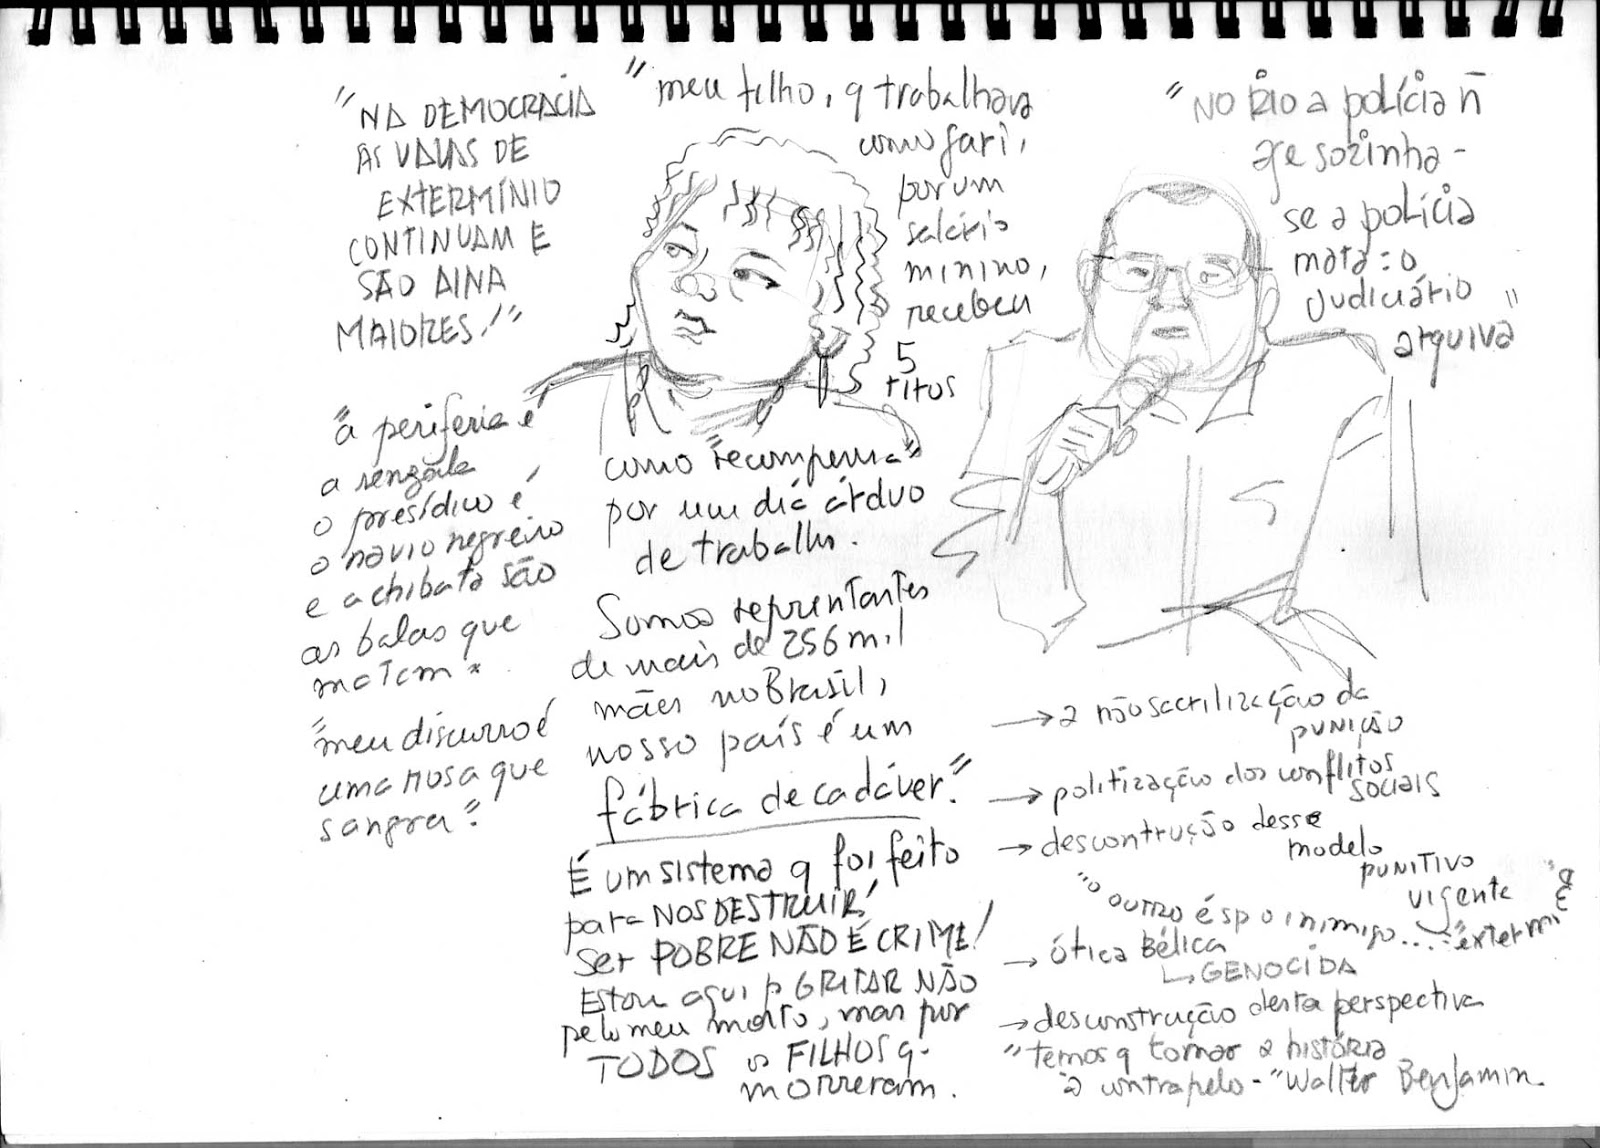 "NA DEMOCRACIA
AS VALAS DE
EXTERMÍNIO
CONTINUAM E
SÃO AINA
MAIORES!"
"a periferia é
a senzala
o presídio é
o navio negreiro
e a chibata são
as balas que
matam"
"meu discurso é
uma rosa que
sangra".
"meu filho, q trabalhava
como gari,
por um
salário
mínino,
recebeu
5
tiros
como "recompensa"
por um dia árduo
de trabalho.
Somos reprentantes
de mais de 256 mil
mães no Brasil,
nosso país é um
fábrica de cadáver."
É um sistema q foi feito
para NOS DESTRUIR!
Ser POBRE NÃO É CRIME!
Estou aqui p GRITAR NÃO
pelo meu morto, mas por
TODOS os FILHOS q
morreram.
"NO RIO a polícia ñ
age sozinha -
se a polícia
mata: o
Judiciário
arquiva"
→ a não sacrilização da
punição
→ politização dos conflitos
sociais
→ descontrução desse
modelo
punitivo
vigente
"o outro é sp o inimigo...
→ ótica bélica
↳ GENOCIDA
→ desconstrução desta perspectiva
"temos q tomar a história
a contrapelo-" Walter Benjamin.